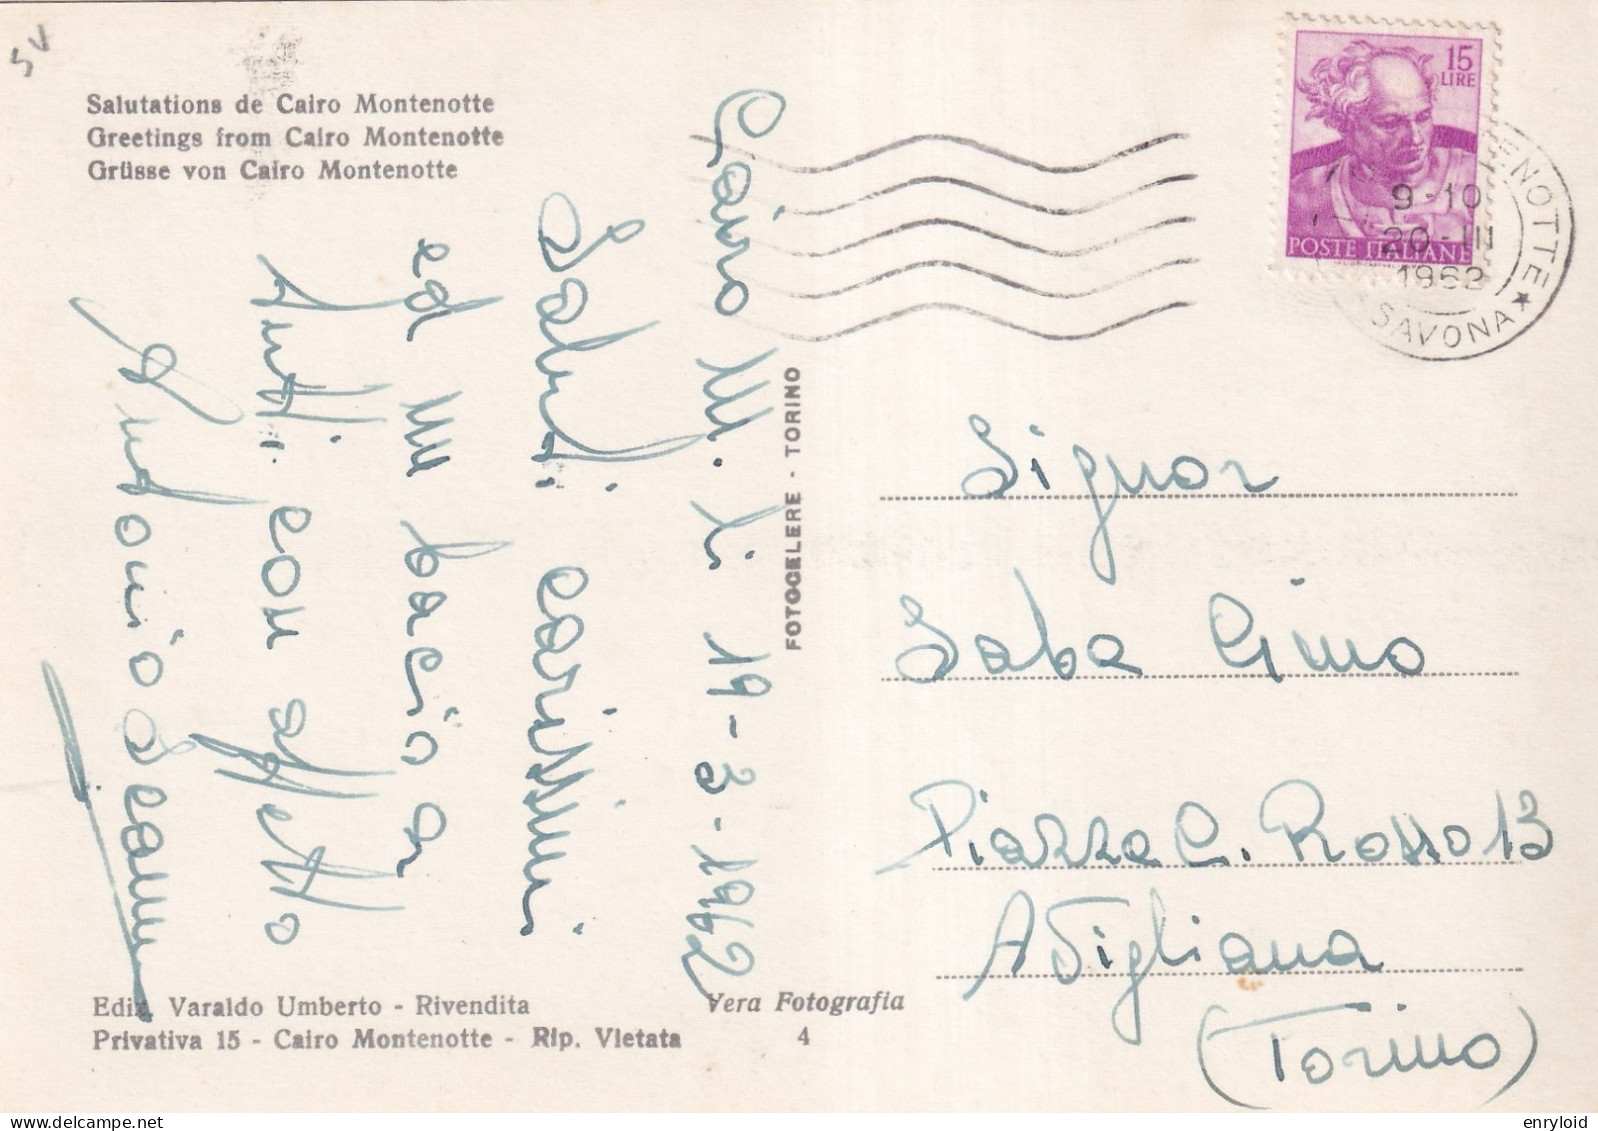 SV
Salutations de Cairo Montenotte
Greetings from Cairo Montenotte
Grüsse von Cairo Montenotte
Cairo M. li 19-3-1962
Saluti carissimi
ed un bacio a
tutti con affetto
Antonio
15
LIRE
POSTE ITALIANE
ENOTTE
9-10
20-III
1962
* SAVONA *
FOTOCELERE - TORINO
Signor
Saba Gino
Piazza C. Rosso 13
Avigliana
(Torino)
Ediz. Varaldo Umberto - Rivendita
Privativa 15 - Cairo Montenotte - Rip. Vietata
Vera Fotografia
4
enryloid